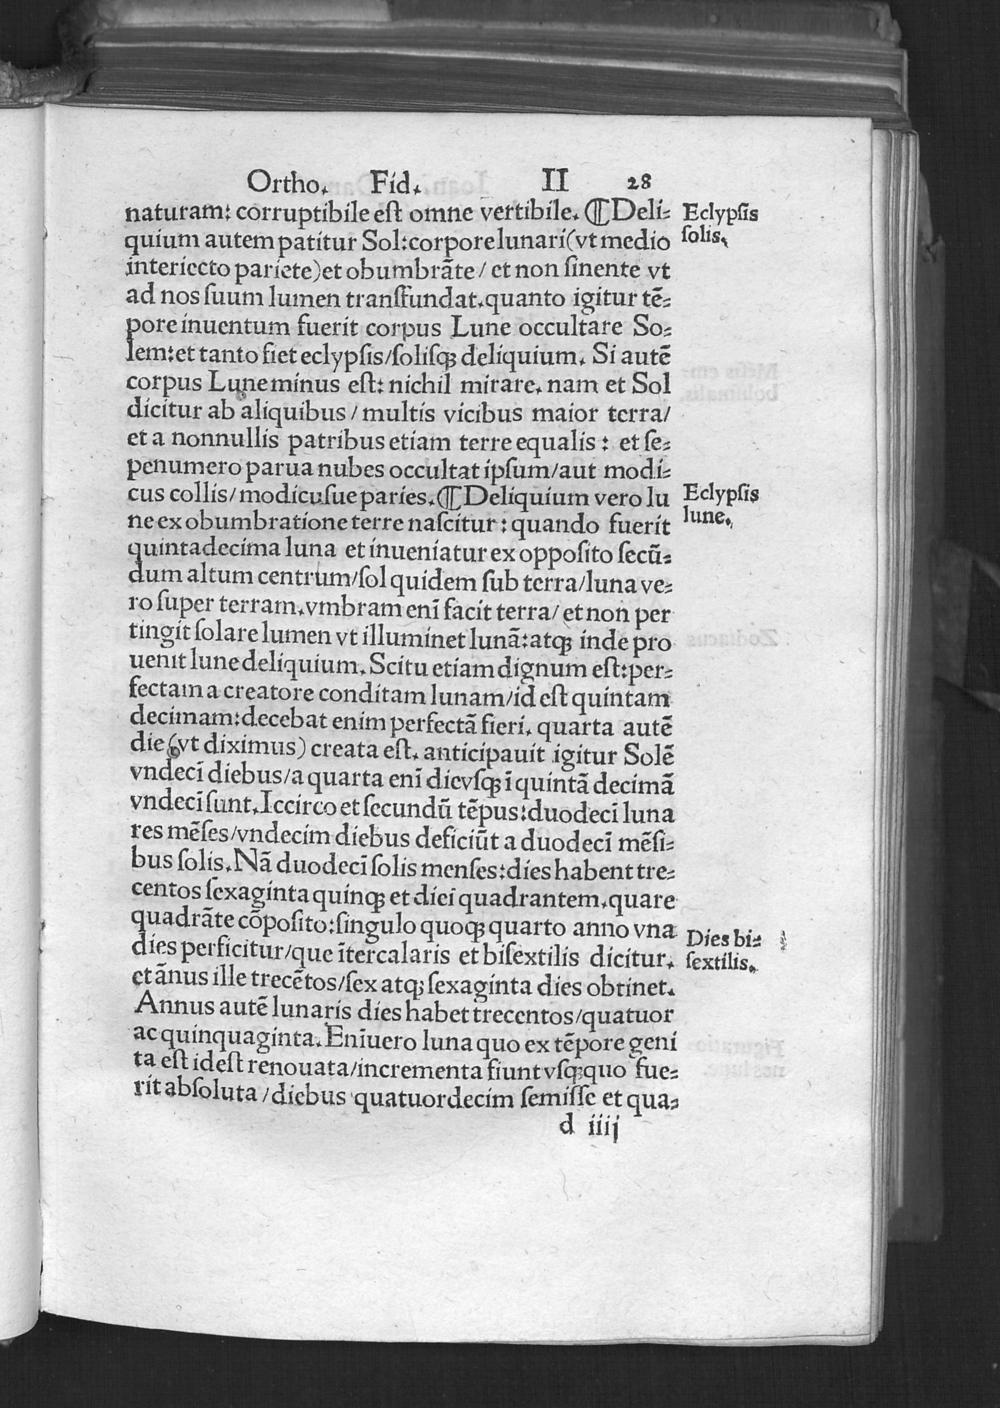 Ortho. Fid. II 28
naturam: corruptibile est omne vertibile. ¶ Deli-
Eclypsis
solis.
quium autem patitur Sol: corpore lunari (vt medio
interiecto pariete) et obumbrāte / et non sinente vt
ad nos suum lumen transfundat. quanto igitur tē-
pore inuentum fuerit corpus Lune occultare So-
lem: et tanto fiet eclypsis / solisqꝫ deliquium. Si autē
corpus Lune minus est: nichil mirare. nam et Sol
dicitur ab aliquibus / multis vicibus maior terra /
et a nonnullis patribus etiam terre equalis : et se-
penumero parua nubes occultat ipsum / aut modi-
cus collis / modicusue paries. ¶ Deliquium vero lu
Eclypsis
lune.
ne ex obumbratione terre nascitur : quando fuerit
quintadecima luna et inueniatur ex opposito secū-
dum altum centrum / sol quidem sub terra / luna ve-
ro super terram. vmbram enī facit terra / et non per
tingit solare lumen vt illuminet lunā: atqꝫ inde pro
uenit lune deliquium. Scitu etiam dignum est: per-
fectam a creatore conditam lunam / id est quintam
decimam: decebat enim perfectā fieri. quarta autē
die (vt diximus) creata est. anticipauit igitur Solē
vndecī diebus / a quarta enī die vsqꝫ ī quintā decimā
vndecī sunt. Iccirco et secundū tēpus: duodecī luna
res mēses / vndecim diebus deficiūt a duodecī mēsi-
bus solis. Nā duodecī solis menses: dies habent tre-
centos sexaginta quinqꝫ et diei quadrantem. quare
quadrāte cōposito: singulo quoqꝫ quarto anno vna
Dies bi-
sextilis.
dies perficitur / que ītercalaris et bisextilis dicitur.
et ānus ille trecētos / sex atqꝫ sexaginta dies obtinet.
Annus autē lunaris dies habet trecentos / quatuor
ac quinquaginta. Enīuero luna quo ex tēpore geni
ta est idest renouata / incrementa fiunt vsqꝫ quo fue-
rit absoluta / diebus quatuordecim semisse et qua-
d iiij